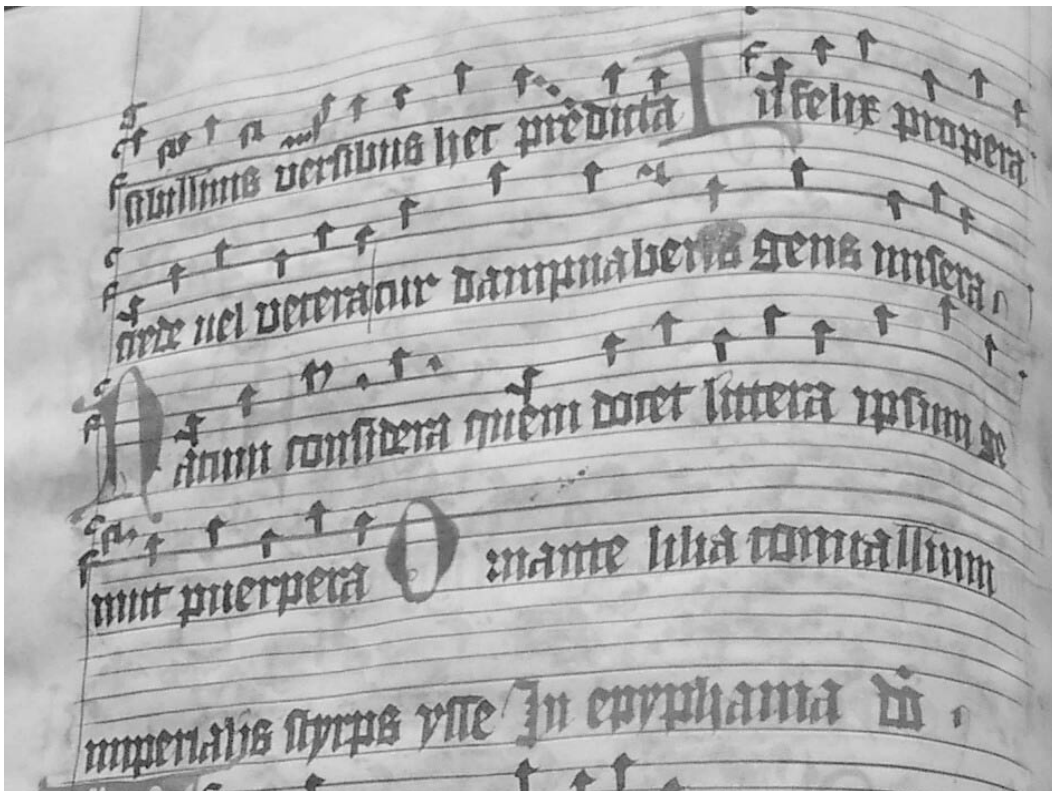 sibillinis versibus hec predicta Infelix propera
crede vel vetera cur dampnaberis gens misera
Natum considera quem docet littera ipsum ge
nuit puerpera O mante lilia conuallium
imperialis styrps yste In epyphania dñi .